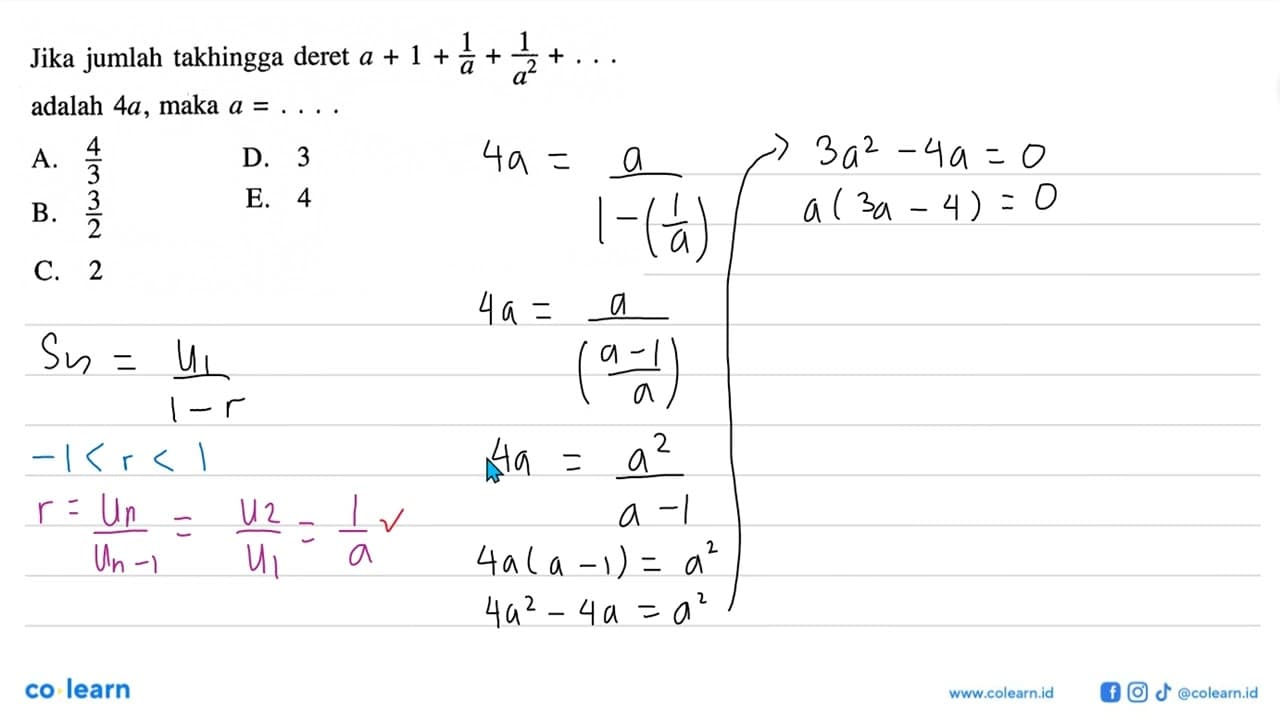 Jika jumlah takhingga deret a + 1 + 1/a + 1/a² + . . .
adalah 4a, maka a = . . . .
A. 4/3
B. 3/2
C. 2
D. 3
E. 4
Sn = U1/(1 - r)
-1 < r < 1
r = Un/Un-1 = U2/U1 = 1/a ✓
4a = a/(1 - (1/a))
4a = a/((a - 1)/a)
4a = a²/(a - 1)
4a(a - 1) = a²
4a² - 4a = a²
→ 3a² - 4a = 0
a(3a - 4) = 0
co learn
www.colearn.id
@colearn.id